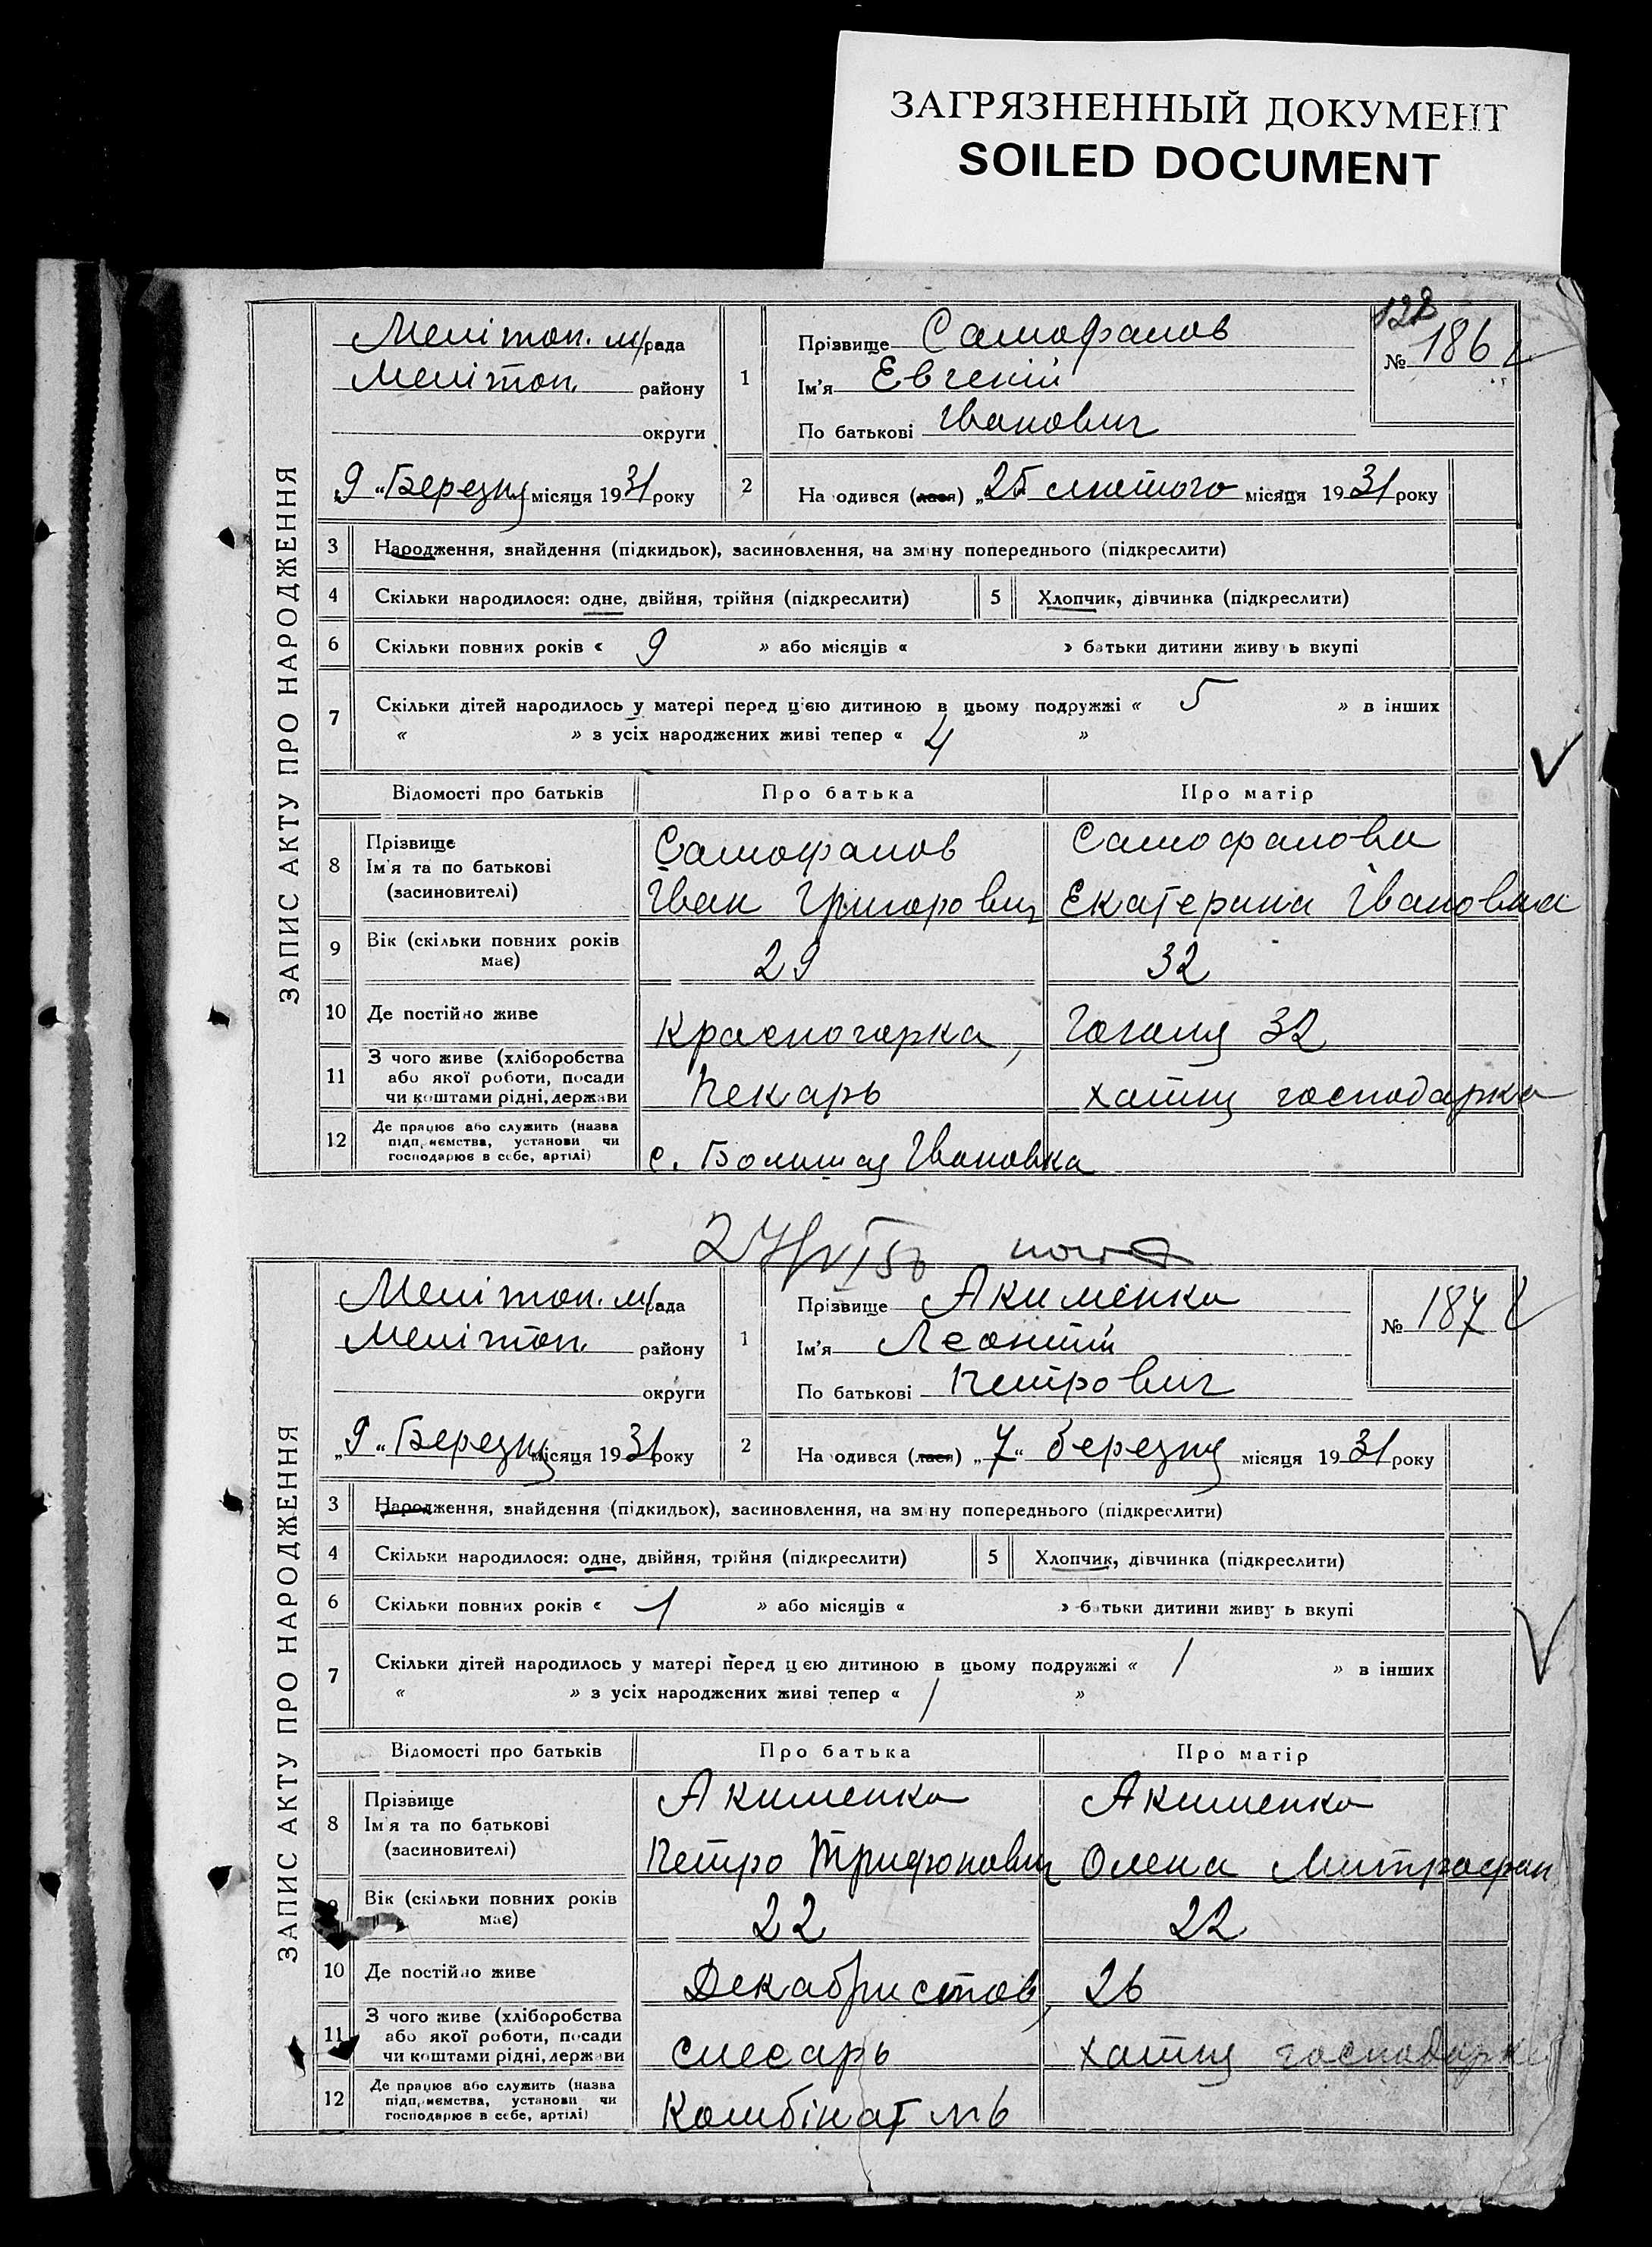 ЗАГРЯЗНЕННЫЙ ДОКУМЕНТ
SOILED DOCUMENT
ЗАПИС АКТУ ПРО НАРОДЖЕННЯ
128
Мелітоп. м/рада
Мелітоп. району
округи
9 „ Березня місяця 1931 року
1
Прізвище Самофалов
Ім'я Евгеній
По батькові Іванович
№ 186
2
На одився (лася) „25 лютого місяця 1931 року
3 Народження, знайдення (підкидьок), засиновлення, на зміну попереднього (підкреслити)
4 Скільки народилося: одне, двійня, трійня (підкреслити) 5 Хлопчик, дівчинка (підкреслити)
6 Скільки повних років « 9 » або місяців « » батьки дитини живу ь вкупі
7 Скільки дітей народилось у матері перед цією дитиною в цьому подружжі « 5 » в інших
« » з усіх народжених живі тепер « 4 »
Відомості про батьків Про батька Про матір
8 Прізвище
Ім'я та по батькові
(засиновителі)
Самофалов Самофалова
Іван Григорович Екатерина Івановна
9 Вік (скільки повних років має) 29 32
10 Де постійно живе Красногорка, Гоголя 32
11 З чого живе (хліборобства
або якої роботи, посади
чи коштами рідні, держави
Пекарь хатня господарка
12 Де працює або служить (назва
підприємства, установи чи
господарює в себе, артілі)
с. Больша Івановка
ЗАПИС АКТУ ПРО НАРОДЖЕННЯ
Мелітоп. м/рада
Мелітоп. району
округи
„ 9 „ Березня місяця 1931 року
1
Прізвище Акименко
Ім'я Леонтій
По батькові Петрович
№ 187
2
На одився (лася) „7 „ березня місяця 1931 року
3 Народження, знайдення (підкидьок), засиновлення, на зміну попереднього (підкреслити)
4 Скільки народилося: одне, двійня, трійня (підкреслити) 5 Хлопчик, дівчинка (підкреслити)
6 Скільки повних років « 1 » або місяців « » батьки дитини живу ь вкупі
7 Скільки дітей народилось у матері перед цією дитиною в цьому подружжі « 1 » в інших
« » з усіх народжених живі тепер « 1 »
Відомості про батьків Про батька Про матір
8 Прізвище
Ім'я та по батькові
(засиновителі)
Акименко Акименко
Петро Трифонович Олена Митрофан
Вік (скільки повних років має) 22 22
10 Де постійно живе Декабристов, 26
11 З чого живе (хліборобства
або якої роботи, посади
чи коштами рідні, держави
слесарь хатня господарка
12 Де працює або служить (назва
підприємства, установи чи
господарює в себе, артілі)
Комбінат №6